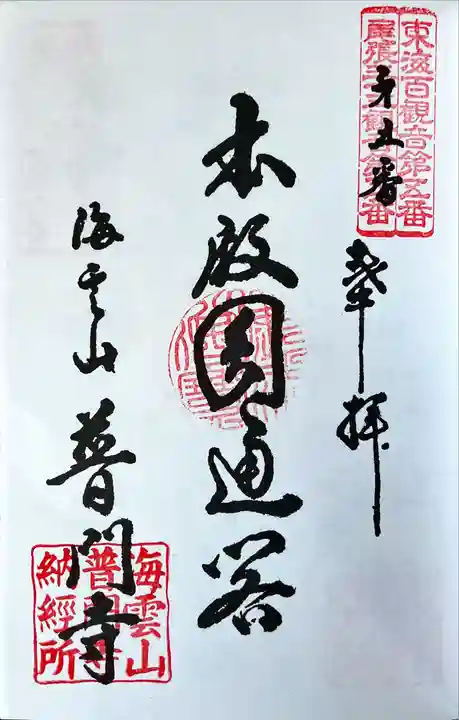 東海百観音第五番
尾張三十三観音第五番
第五番
奉拝
本殿
圓通閣
海雲山
普門寺
海雲山
普門寺
納経所